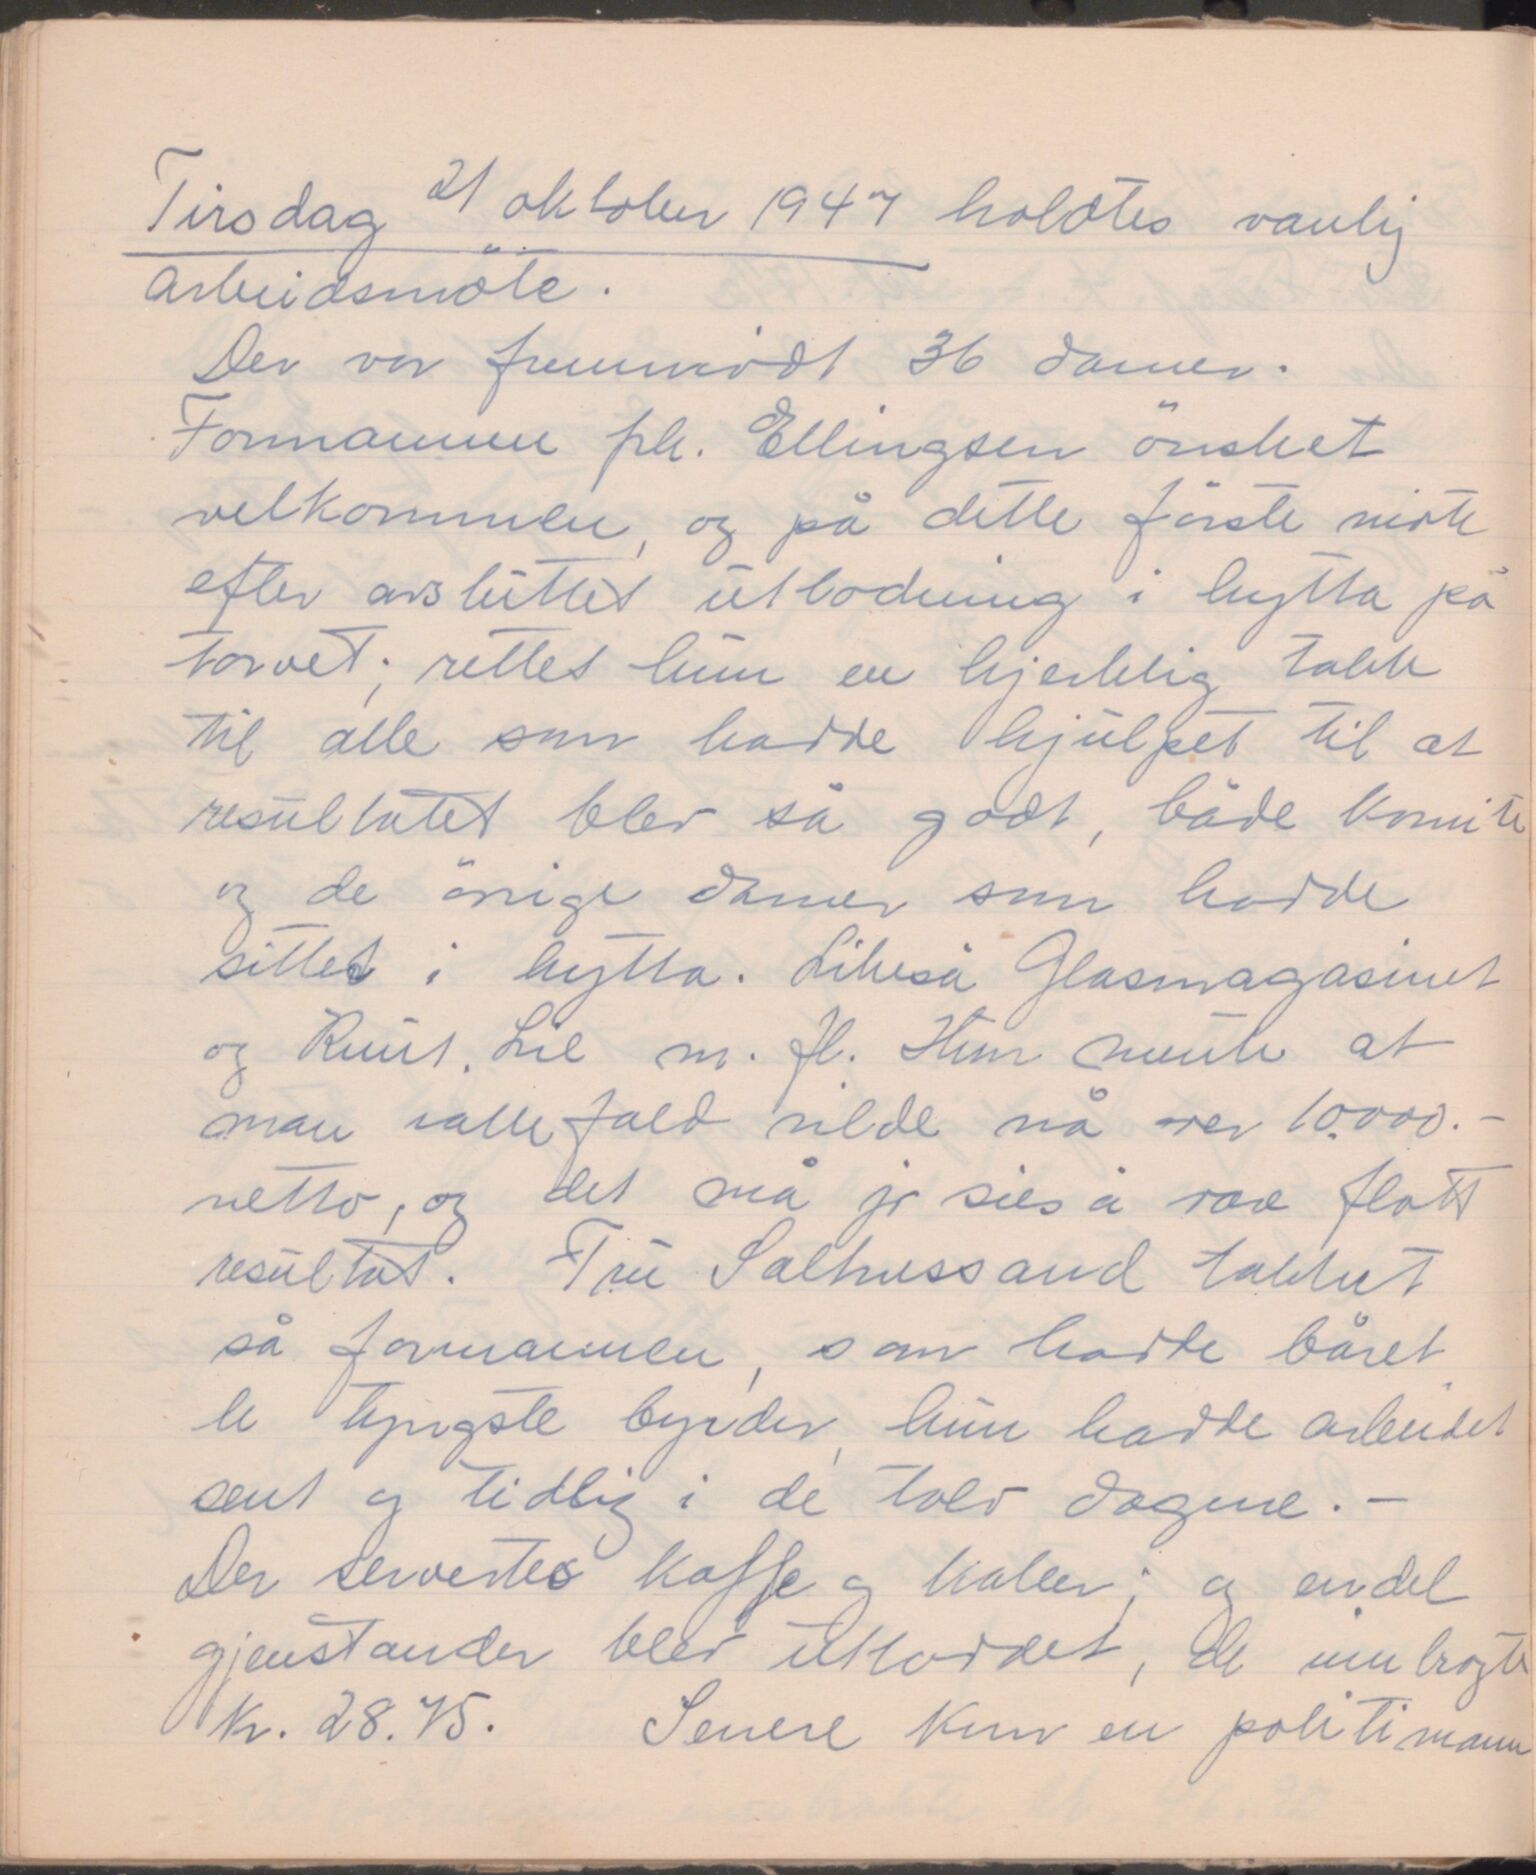 Tirsdag 21 oktober 1947 holdtes vanlig
arbeidsmöte.
Der var fremmödt 36 damer.
Formannen frk. Ellingsen önsket
velkommen, og på dette förste möte
efter avsluttet utlodning i hytta på
torvet; rettet hun en hjertelig takk
til alle som hadde hjulpet til at
resultatet blev så godt, både komite
og de övrige damer som hadde
sittet i hytta. Likeså Glasmagasinet
og Lie m. fl. Hun mente at
man iallefald vilde nå over 10.000.-
netto, og det må jo sies å være flott
resultat. Fru Salhussand takket
så formannen, som hadde båret
de tyngste byrder, hun hadde arbeidet
sent og tidlig i de tolv dagene. -
Der servertes kaffe og kaker; og endel
gjenstander blev utloddet, de innbragte
kr. 28.75. Senere kom en politimann